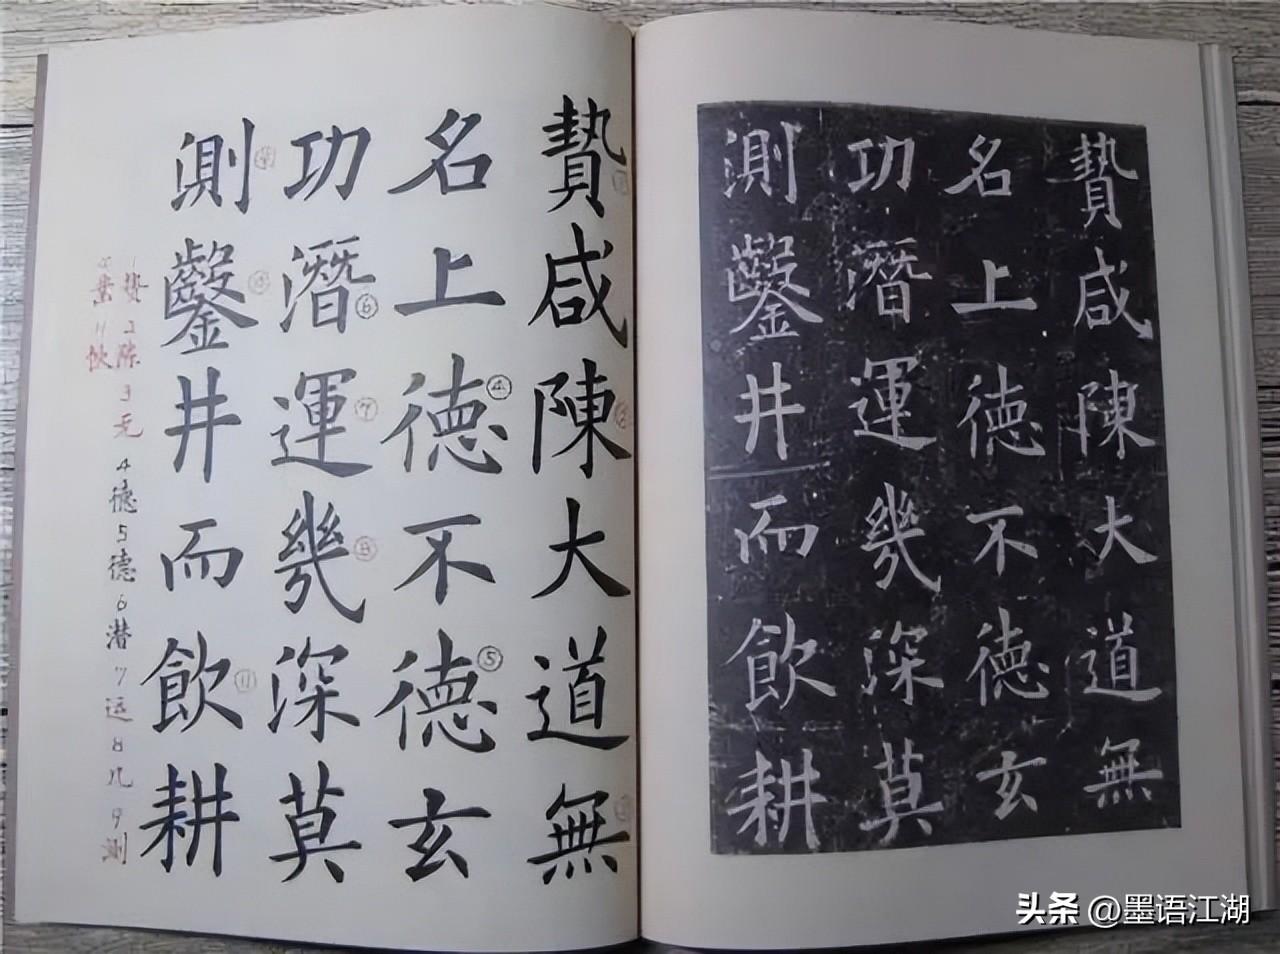 贄咸陳大道無
名上德不德玄
功潛運幾深莫
測鑿井而飲耕
④
⑤
⑥
⑦
⑧
⑪
1贽2陈3无4德5德6潜7运8几9测
11饮
贄咸陳大道無
名上德不德玄
功潛運幾深莫
測鑿井而飲耕
头条 @墨语江湖